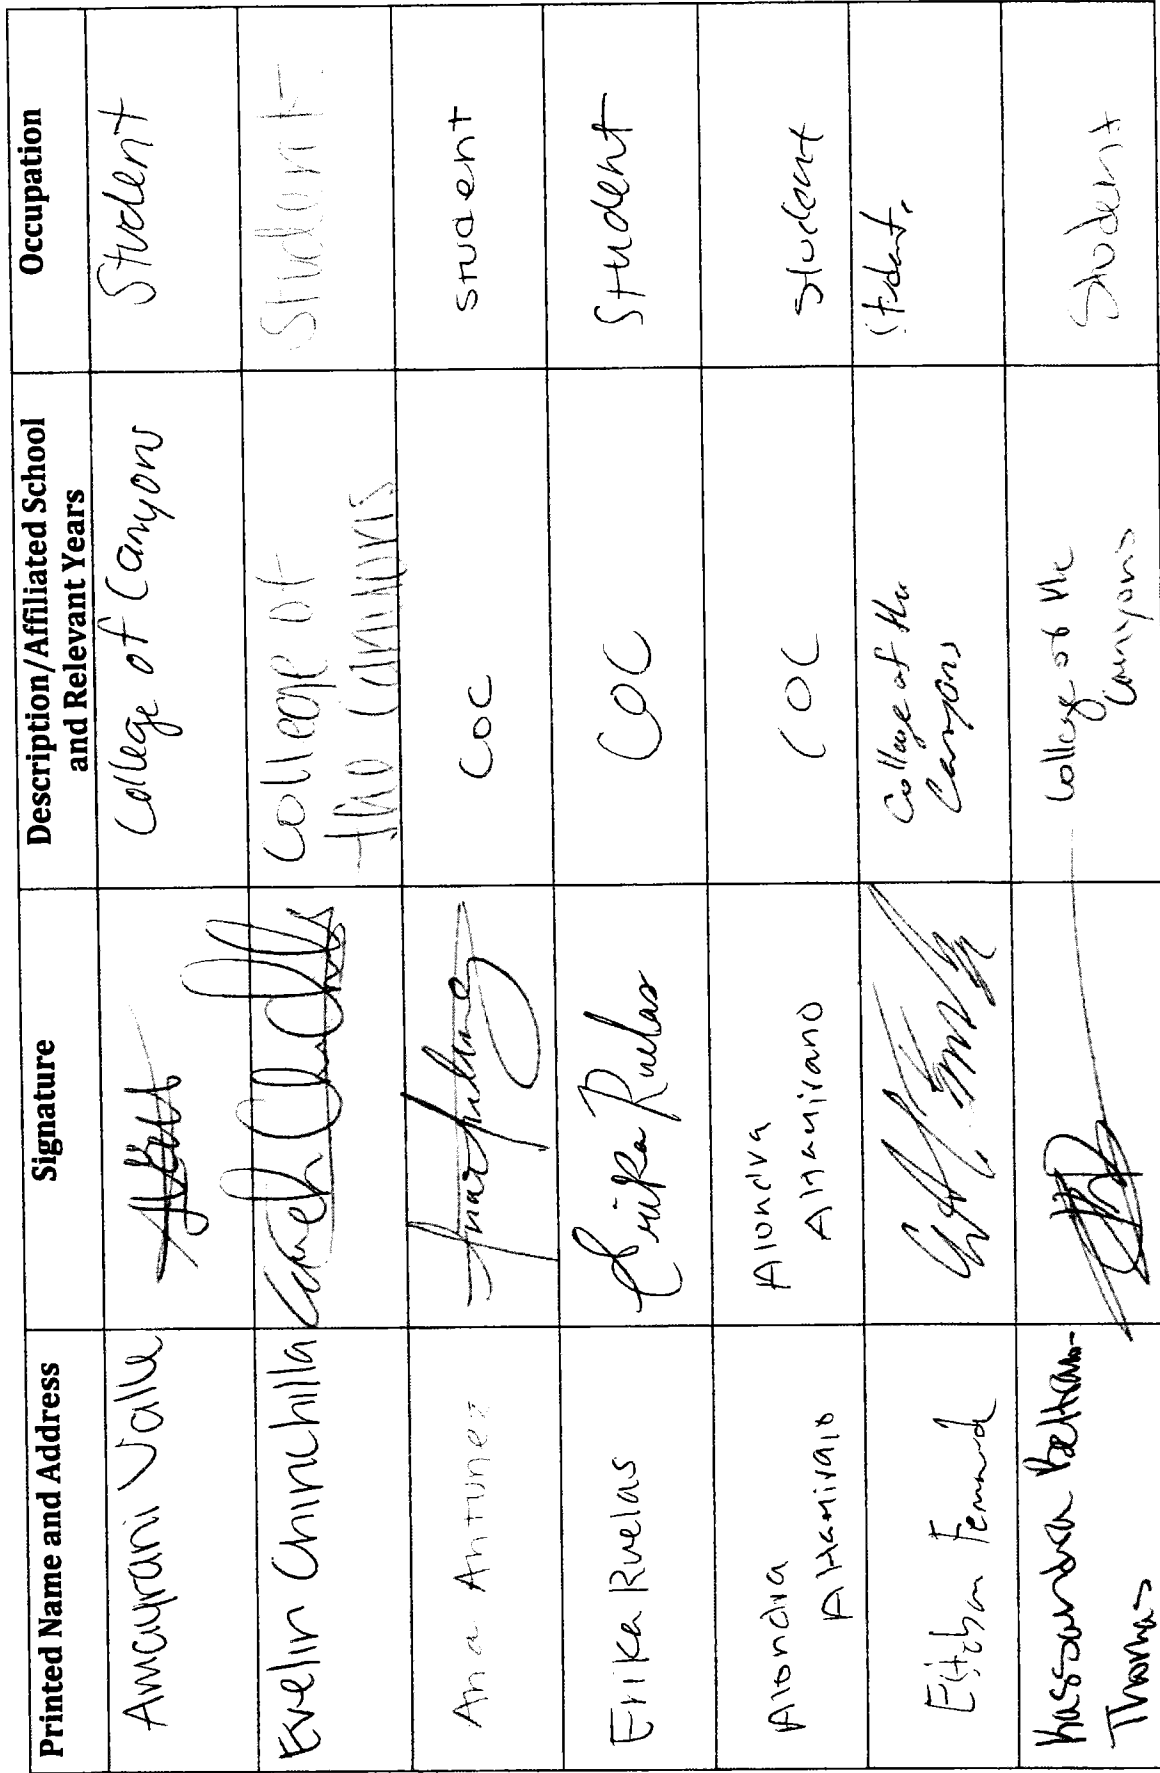 Printed Name and Address
Signature
Description/Affiliated School
and Relevant Years
Occupation
Amayrani Valle
College of Canyons
Student
Evelin Chinchilla
College of
the Canyons
Student
Ana Antunez
COC
student
Erika Ruelas
Erika Ruelas
COC
Student
Alondra
Altamirano
Alondra
Altamirano
COC
student
College of the
Canyons
Student.
Kassandra Beltran-
Thomas
College of the
Canyons
Student